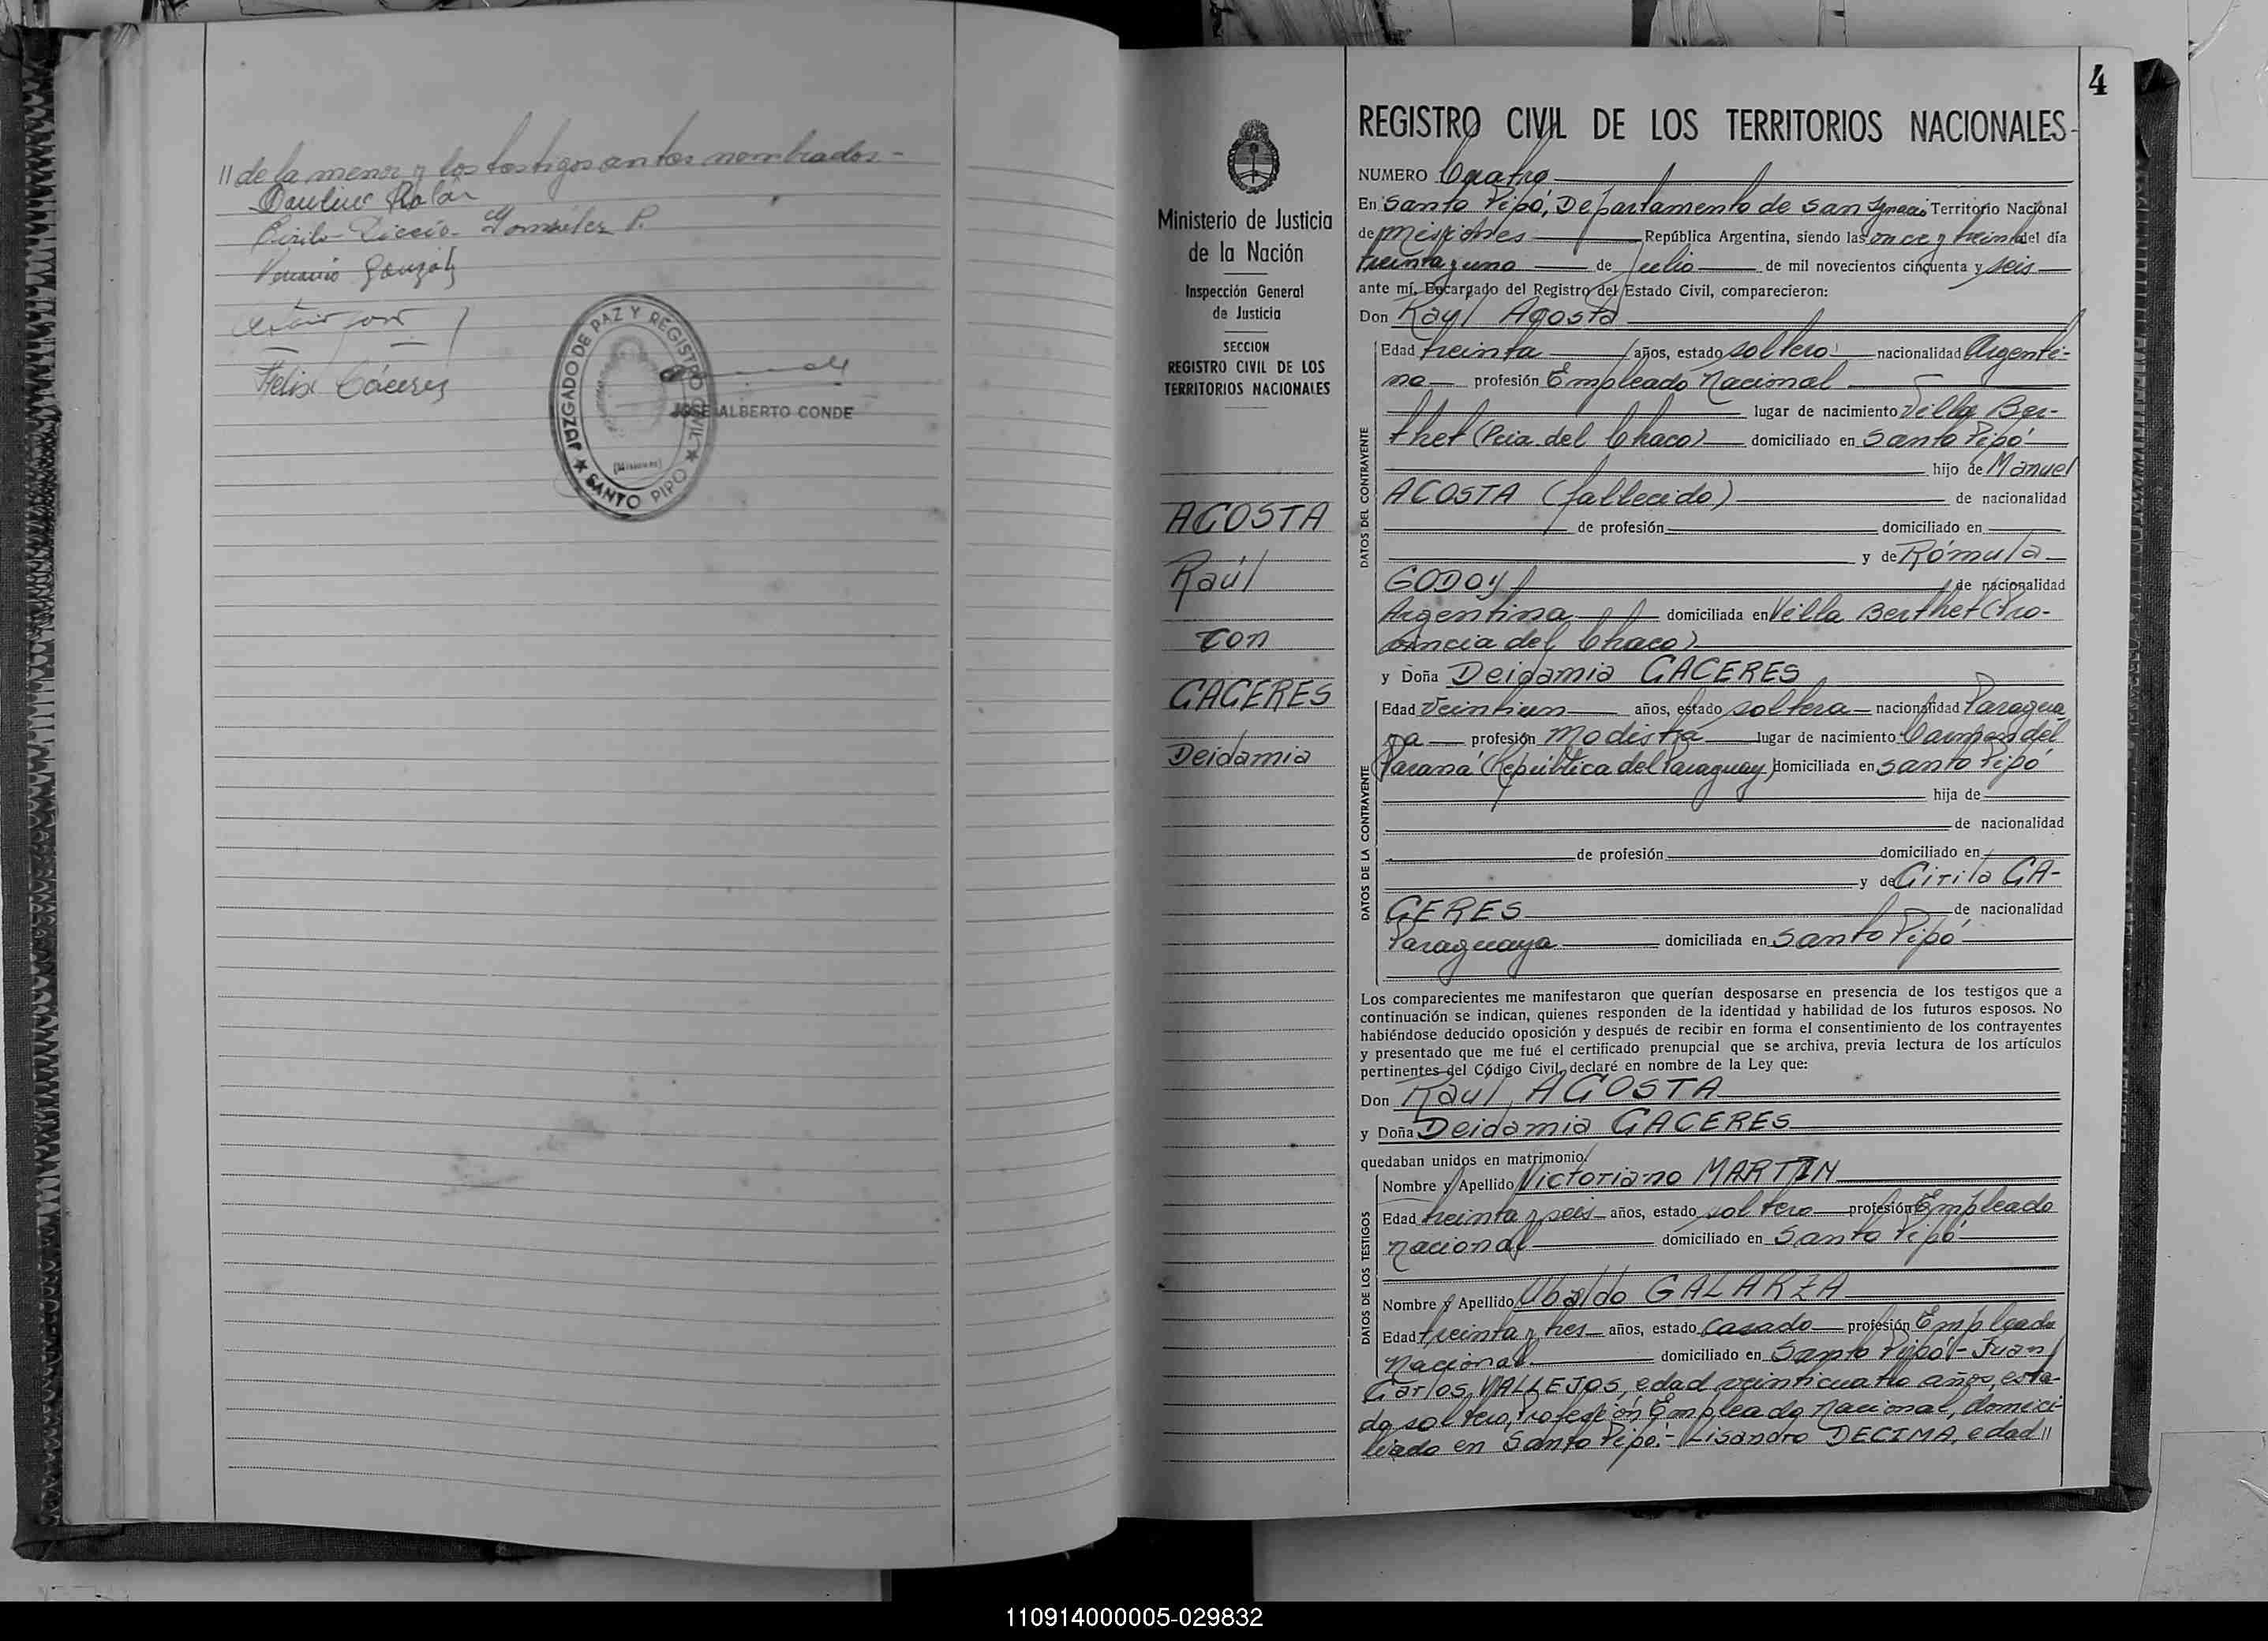 // de la menor y los testigos antes nombrados -
Paulino
Cirilo González P.
Félix Cáceres
JUZGADO DE PAZ Y REGISTRO CIVIL
(Misiones)
SANTO PIPO
JOSE ALBERTO CONDE
4
Ministerio de Justicia
de la Nación
Inspección General
de Justicia
SECCION
REGISTRO CIVIL DE LOS
TERRITORIOS NACIONALES
ACOSTA
Raúl
con
CACERES
Deidamia
REGISTRO CIVIL DE LOS TERRITORIOS NACIONALES
NUMERO Cuatro
En Santo Pipó, Departamento de San Ignacio Territorio Nacional
de Misiones República Argentina, siendo las once y treinta del día
treinta y uno de Julio de mil novecientos cincuenta y seis
ante mí, Encargado del Registro del Estado Civil, comparecieron:
Don Raúl Acosta
DATOS DEL CONTRAYENTE
Edad treinta años, estado soltero nacionalidad Argenti-
na profesión Empleado Nacional
lugar de nacimiento Villa Ber-
thet (Pcia. del Chaco) domiciliado en Santo Pipó
hijo de Manuel
ACOSTA (fallecido) de nacionalidad
de profesión domiciliado en
y de Rómula
GODOY de nacionalidad
Argentina domiciliada en Villa Berthet (Pro-
vincia del Chaco)
y Doña Deidamia CACERES
DATOS DE LA CONTRAYENTE
Edad Veintiun años, estado soltera nacionalidad Paragua-
ya profesión Modista lugar de nacimiento Carmen del
Paraná (República del Paraguay) domiciliada en Santo Pipó
hija de
de nacionalidad
de profesión domiciliado en
y de Cirila CA-
CERES de nacionalidad
Paraguaya domiciliada en Santo Pipó
Los comparecientes me manifestaron que querían desposarse en presencia de los testigos que a
continuación se indican, quienes responden de la identidad y habilidad de los futuros esposos. No
habiéndose deducido oposición y después de recibir en forma el consentimiento de los contrayentes
y presentado que me fué el certificado prenupcial que se archiva, previa lectura de los artículos
pertinentes del Código Civil, declaré en nombre de la Ley que:
Don Raúl ACOSTA
y Doña Deidamia CACERES
quedaban unidos en matrimonio.
DATOS DE LOS TESTIGOS
Nombre y Apellido Victoriano MARTIN
Edad treinta y seis años, estado soltero profesión Empleado
nacional domiciliado en Santo Pipó
Nombre y Apellido Ubaldo GALARZA
Edad treinta y tres años, estado casado profesión Empleado
Nacional domiciliado en Santo Pipó - Juan
Carlos VALLEJOS, edad veinticuatro años, esta-
do soltero, Profesión Empleado Nacional, domici-
liado en Santo Pipó.- Lisandro DECIMA, edad //
110914000005-029832